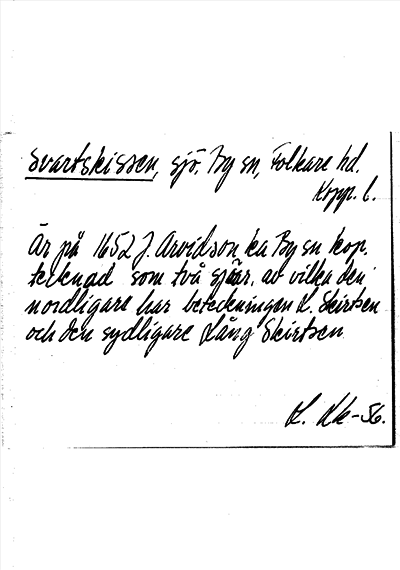 Svartskissen, sjö, By sn, Folkare hd.
Kopp. l.
Är på 1652 J. Arvidson ka By sn kop.
tecknad som två sjöar, av vilka den
nordligare har beteckningen L. Skirtsen
och den sydligare Lång Skirtsen